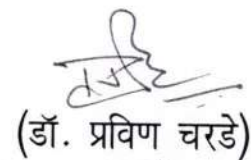 (डॉ. प्रविण चरडे)